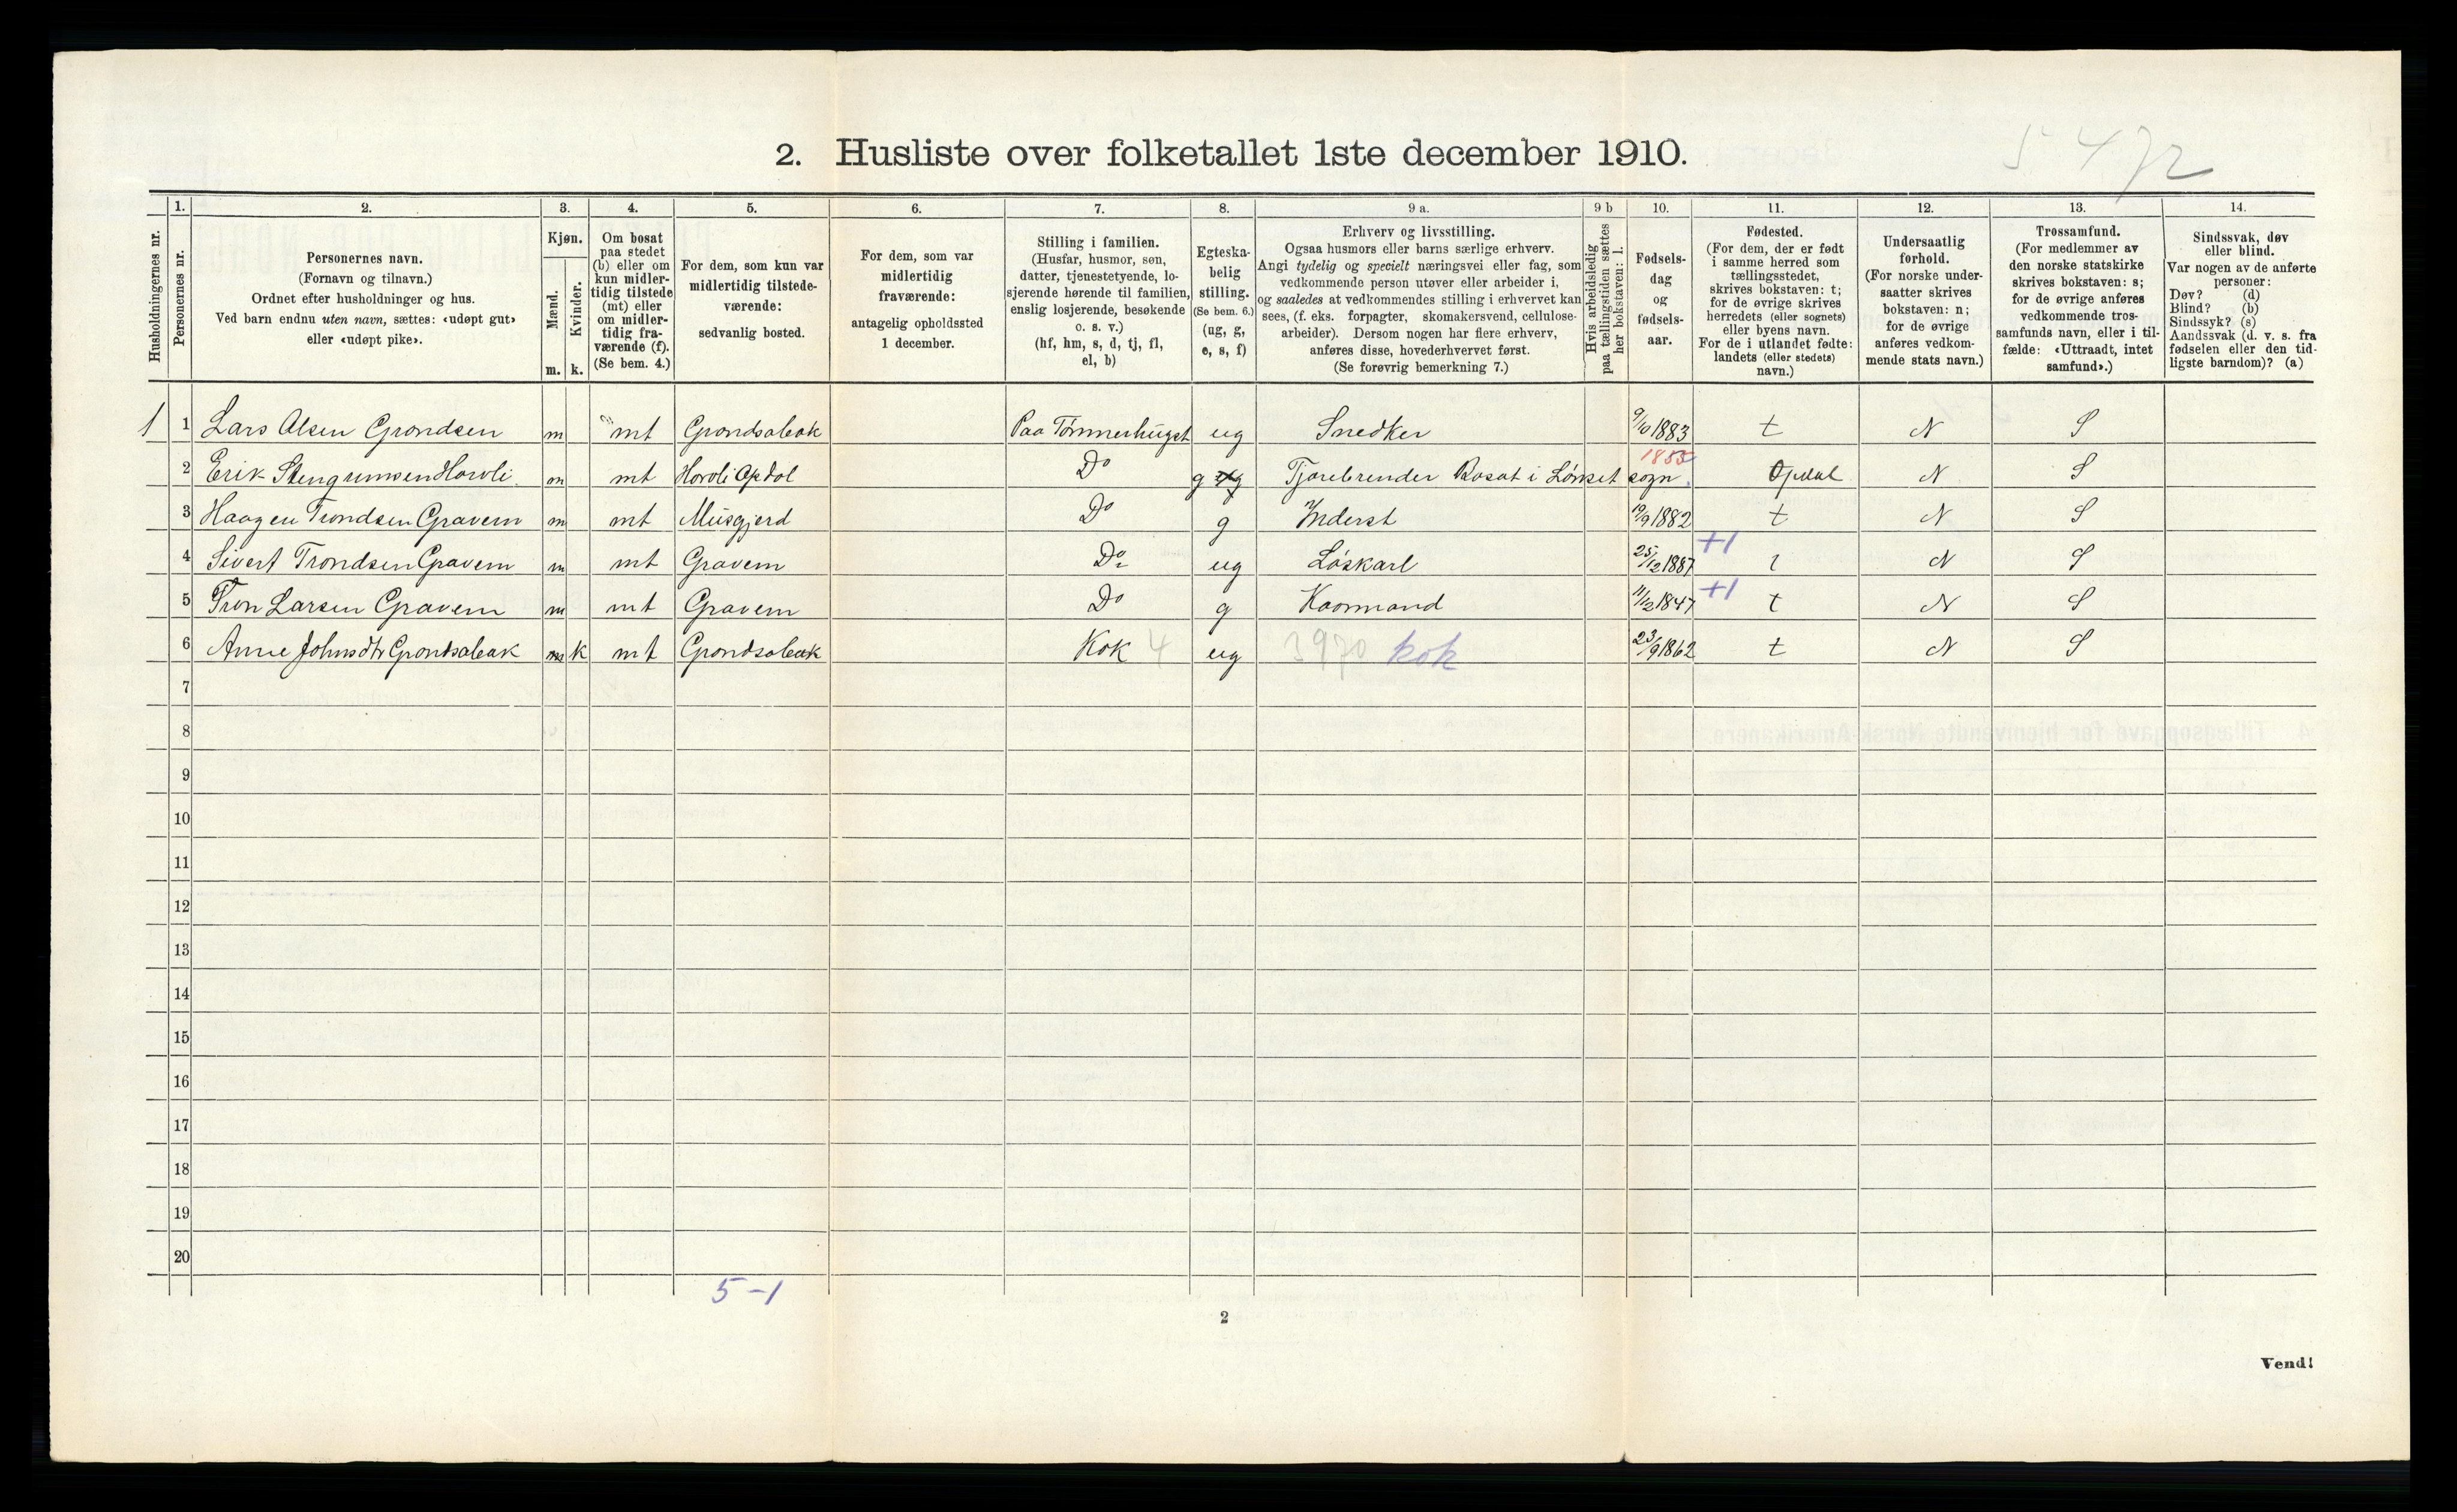 2. Husliste over folketallet 1ste december 1910.
5 4
1. 2. 3. 4. 5. 6. 7. 8. 9 a. 9 b 10. 11. 12. 13. 14.
Husholdningernes nr.
Personernes nr.
Personernes navn.
(Fornavn og tilnavn.)
Ordnet efter husholdninger og hus.
Ved barn endnu uten navn, sættes: «udøpt gut»
eller «udøpt pike».
Kjøn.
Mænd.
Kvinder.
m. k.
Om bosat
paa stedet
(b) eller om
kun midler-
tidig tilstede
(mt) eller
om midler-
tidig fra-
værende (f).
(Se bem. 4.)
For dem, som kun var
midlertidig tilstede-
værende:
sedvanlig bosted.
For dem, som var
midlertidig
fraværende:
antagelig opholdssted
1 december.
Stilling i familien.
(Husfar, husmor, søn,
datter, tjenestetyende, lo-
sjerende hørende til familien,
enslig losjerende, besøkende
o. s. v.)
(hf, hm, s, d, tj, fl,
el, b)
Egteska-
belig
stilling.
(Se bem. 6.)
(ug, g,
e, s, f)
Erhverv og livsstilling.
Ogsaa husmors eller barns særlige erhverv.
Angi tydelig og specielt næringsvei eller fag, som
vedkommende person utøver eller arbeider i,
og saaledes at vedkommendes stilling i erhvervet kan
sees, (f. eks. forpagter, skomakersvend, cellulose-
arbeider). Dersom nogen har flere erhverv,
anføres disse, hovederhvervet først.
(Se forøvrig bemerkning 7.)
Hvis arbeidsledig
paa tællingstiden sættes
her bokstaven: l.
Fødsels-
dag
og
fødsels-
aar.
Fødested.
(For dem, der er født
i samme herred som
tællingsstedet,
skrives bokstaven: t;
for de øvrige skrives
herredets (eller sognets)
eller byens navn.
For de i utlandet fødte:
landets (eller stedets)
navn.)
Undersaatlig
forhold.
(For norske under-
saatter skrives
bokstaven: n;
for de øvrige
anføres vedkom-
mende stats navn.)
Trossamfund.
(For medlemmer av
den norske statskirke
skrives bokstaven: s;
for de øvrige anføres
vedkommende tros-
samfunds navn, eller i til-
fælde: «Uttraadt, intet
samfund».)
Sindssvak, døv
eller blind.
Var nogen av de anførte
personer:
Døv? (d)
Blind? (b)
Sindssyk? (s)
Aandssvak (d. v. s. fra
fødselen eller den tid-
ligste barndom)? (a)
1 1 Lars Olsen Grondsen m mt Grondsaleak Paa Tømmerhugst ug Snedker 9/10 1883 t N S
2 Erik m mt Horvli Opdol Do g Tjærebrender Bosat i Lønset sogn 1855 Opdal N S
3 Haagen Trondsen Gravem m mt Musgjerd Do g Inderst 19/9 1882 t N S
4 Sivert Trondsen Gravem m mt Gravem Do ug Løskarl 25/12 1887 +1 t N S
5 Tron Larsen Gravem m mt Gravem Do g Kaarmand 11/12 1847 +1 t N S
6 Anne Johnsdtr Grondsaleak k mt Grondsaleak Kok 4 ug 3970 kok 23/9 1862 t N S
7
8
9
10
11
12
13
14
15
16
17
18
19
20
5-1
2
Vend!